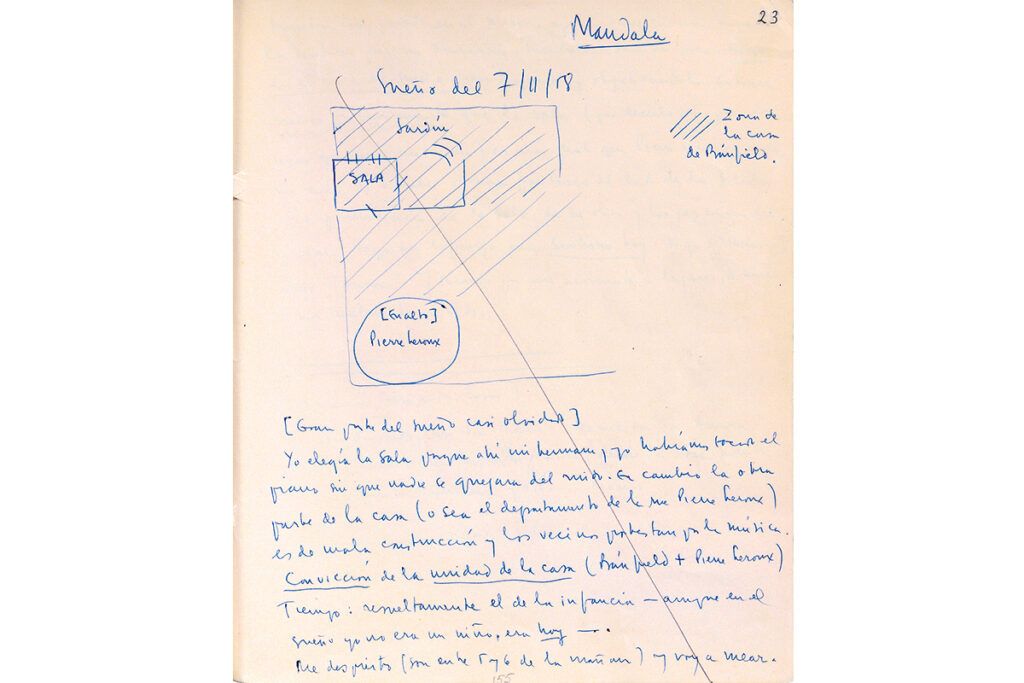 23
Mandala
Sueño del 7/11/58
Jardín
Zona de
la casa
de Bánfield.
SALA
[En alto]
Pierre Leroux
[Gran parte del sueño casi olvidado]
Yo elegía la sala porque ahí mi hermana y yo habíamos tocar el
piano sin que nadie se quejara del ruido. En cambio la otra
parte de la casa (o sea el departamento de la rue Pierre Leroux)
es de mala construcción y los vecinos protestan por la música.
Convicción de la unidad de la casa (Bánfield + Pierre Leroux)
Tiempo: resueltamente el de la infancia — aunque en el
sueño yo no era un niño, era hoy —.
Me despierto (son entre 5 y 6 de la mañana) y voy a mear.
155